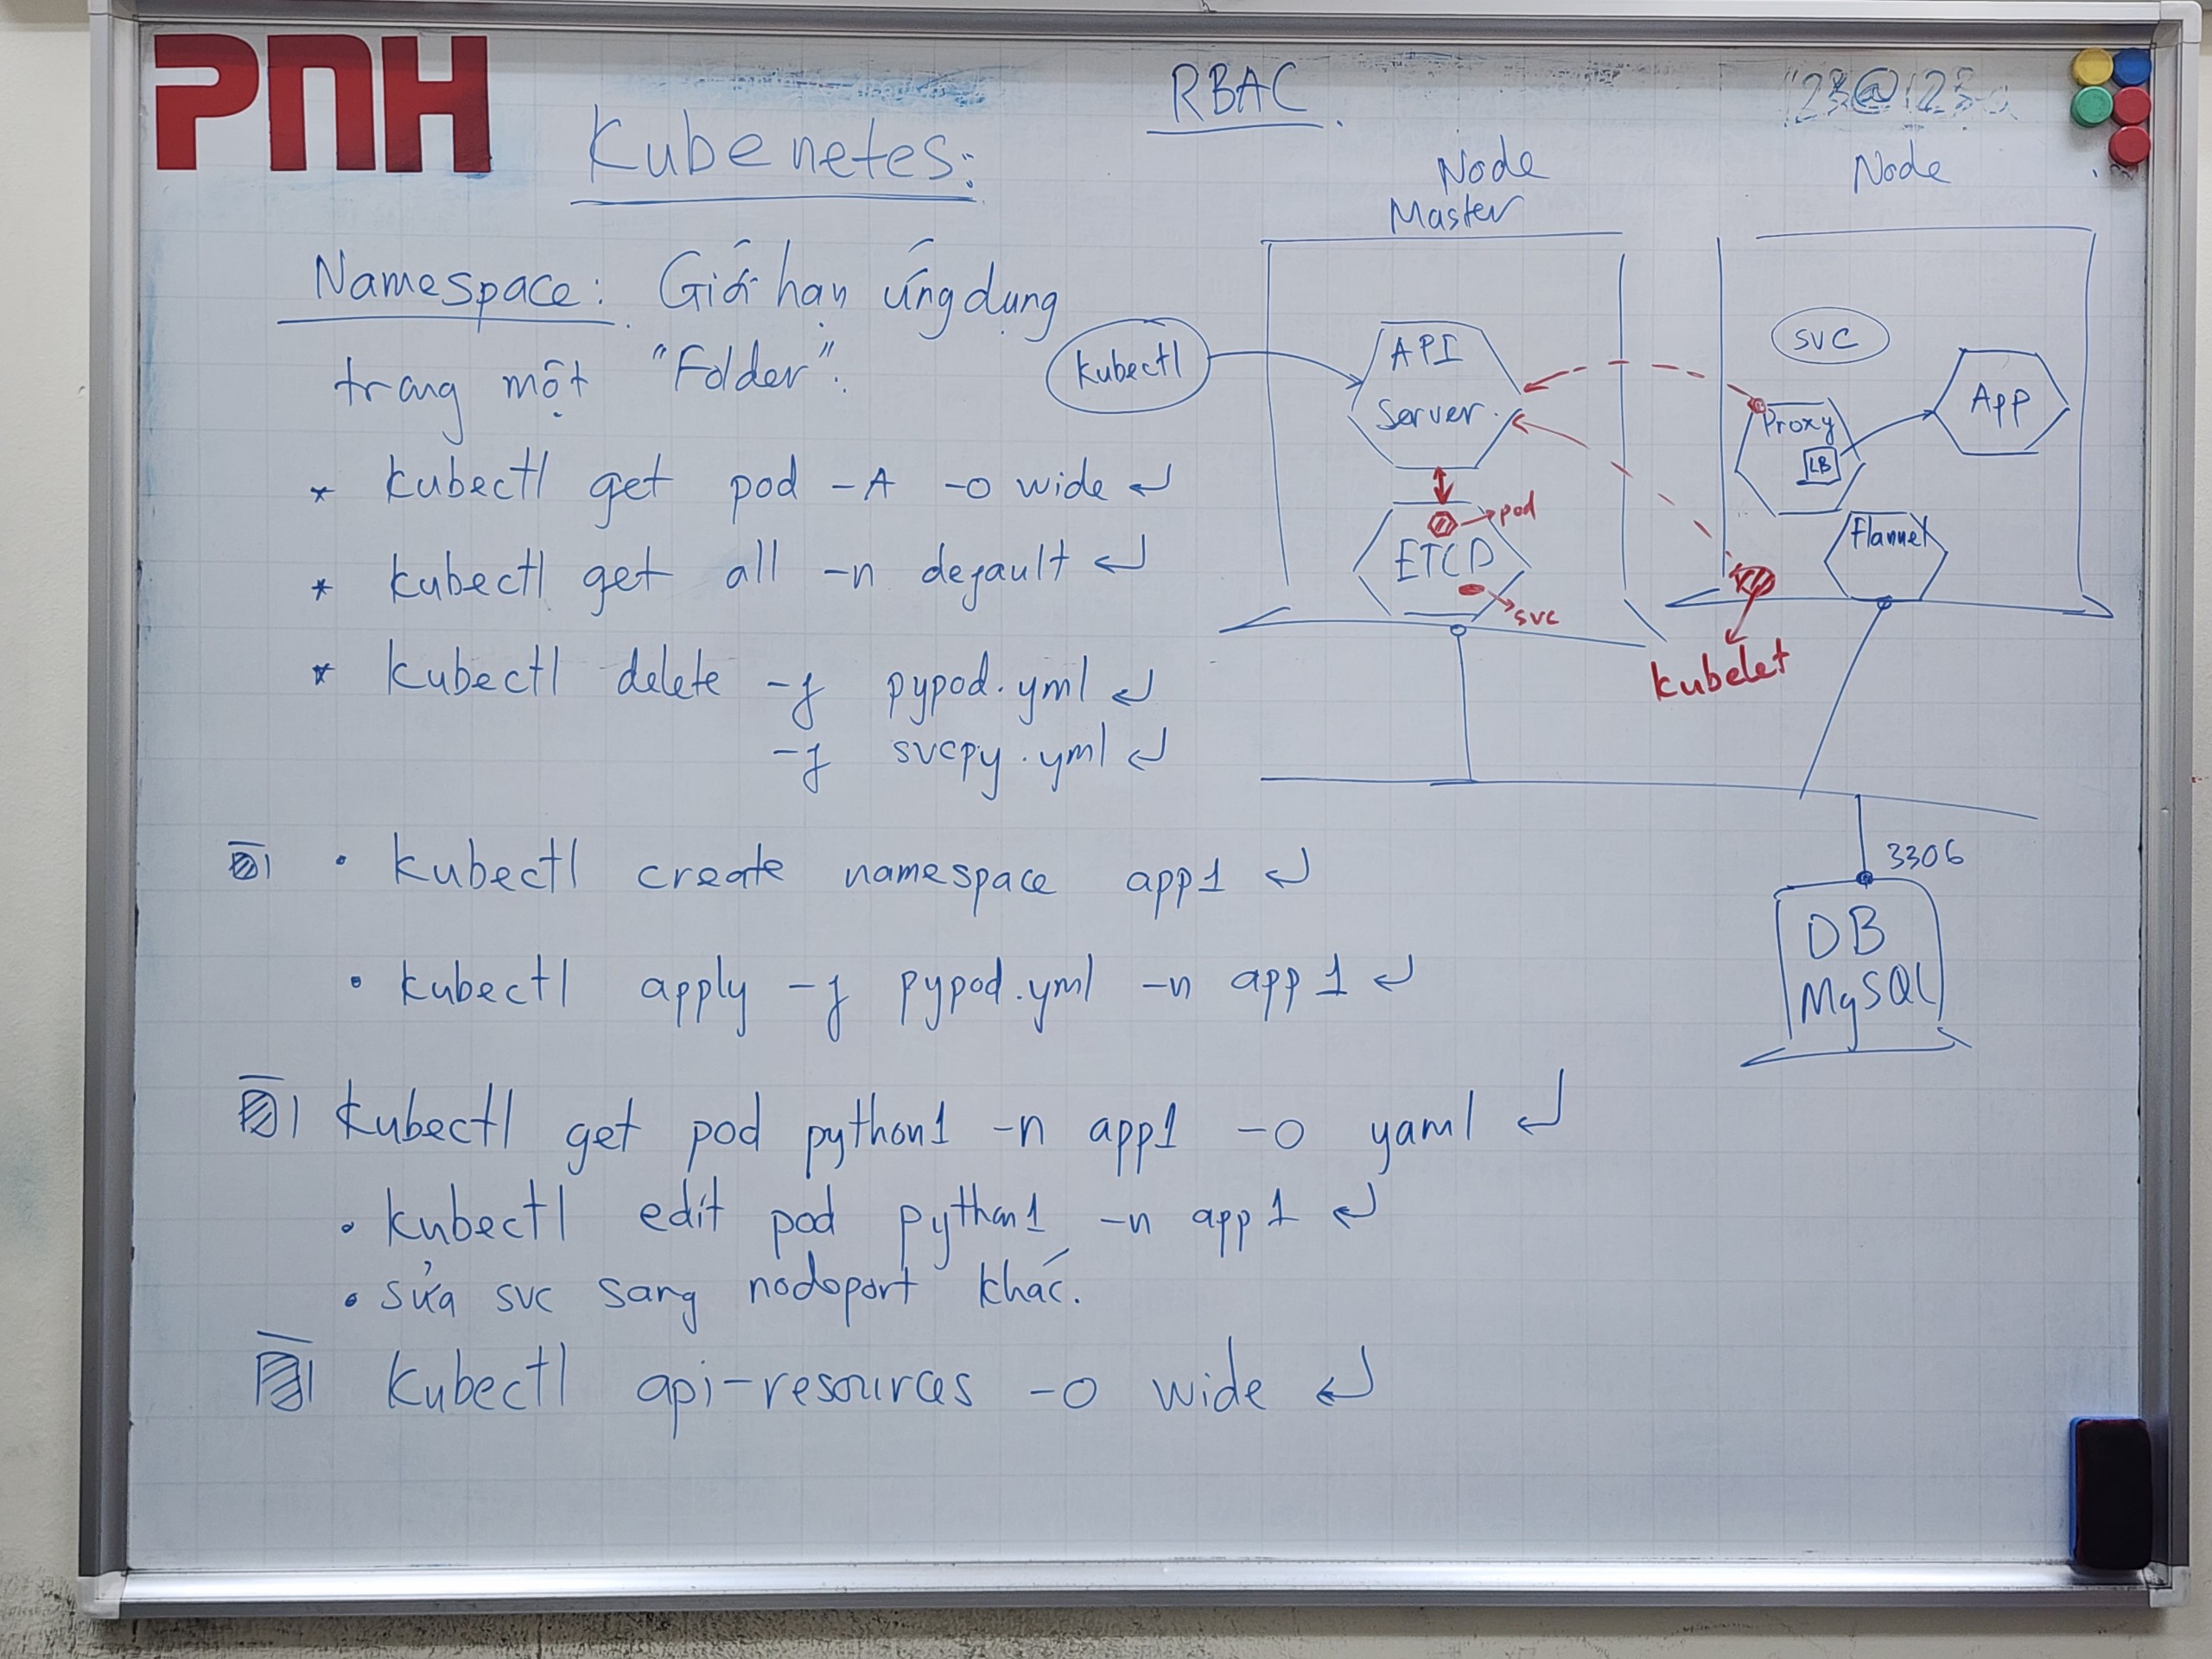 PNH
RBAC
123@123a
Kubenetes:
Node
Master
Node
Namespace: Giới hạn ứng dụng
trong một "Folder".
* kubectl get pod -A -o wide ↵
* kubectl get all -n default ↵
* kubectl delete -f pypod.yml ↵
-f svcpy.yml ↵
• kubectl create namespace app1 ↵
• kubectl apply -f pypod.yml -n app1 ↵
kubectl get pod python1 -n app1 -o yaml ↵
• kubectl edit pod python1 -n app1 ↵
• sửa svc sang nodeport khác.
kubectl api-resources -o wide ↵
kubectl
API
Server.
pod
ETCD
svc
svc
Proxy
LB
App
Flannel
kubelet
3306
DB
MySQL